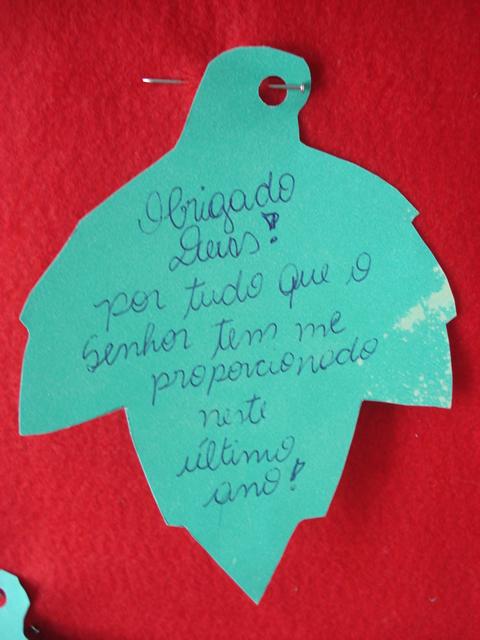 Obrigado
Deus!
por tudo que o
Senhor tem me
proporcionado
neste
último
ano!